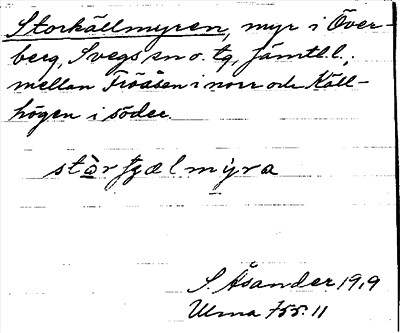 Storkällmyren, myr i Över-
berg, Svegs sn o. tg, Jämtl. l.,
mellan Tröåsen i norr och Käll-
högen i söder.
stòr tjælmýra
S. Åsander 1919
Ulma 755:11